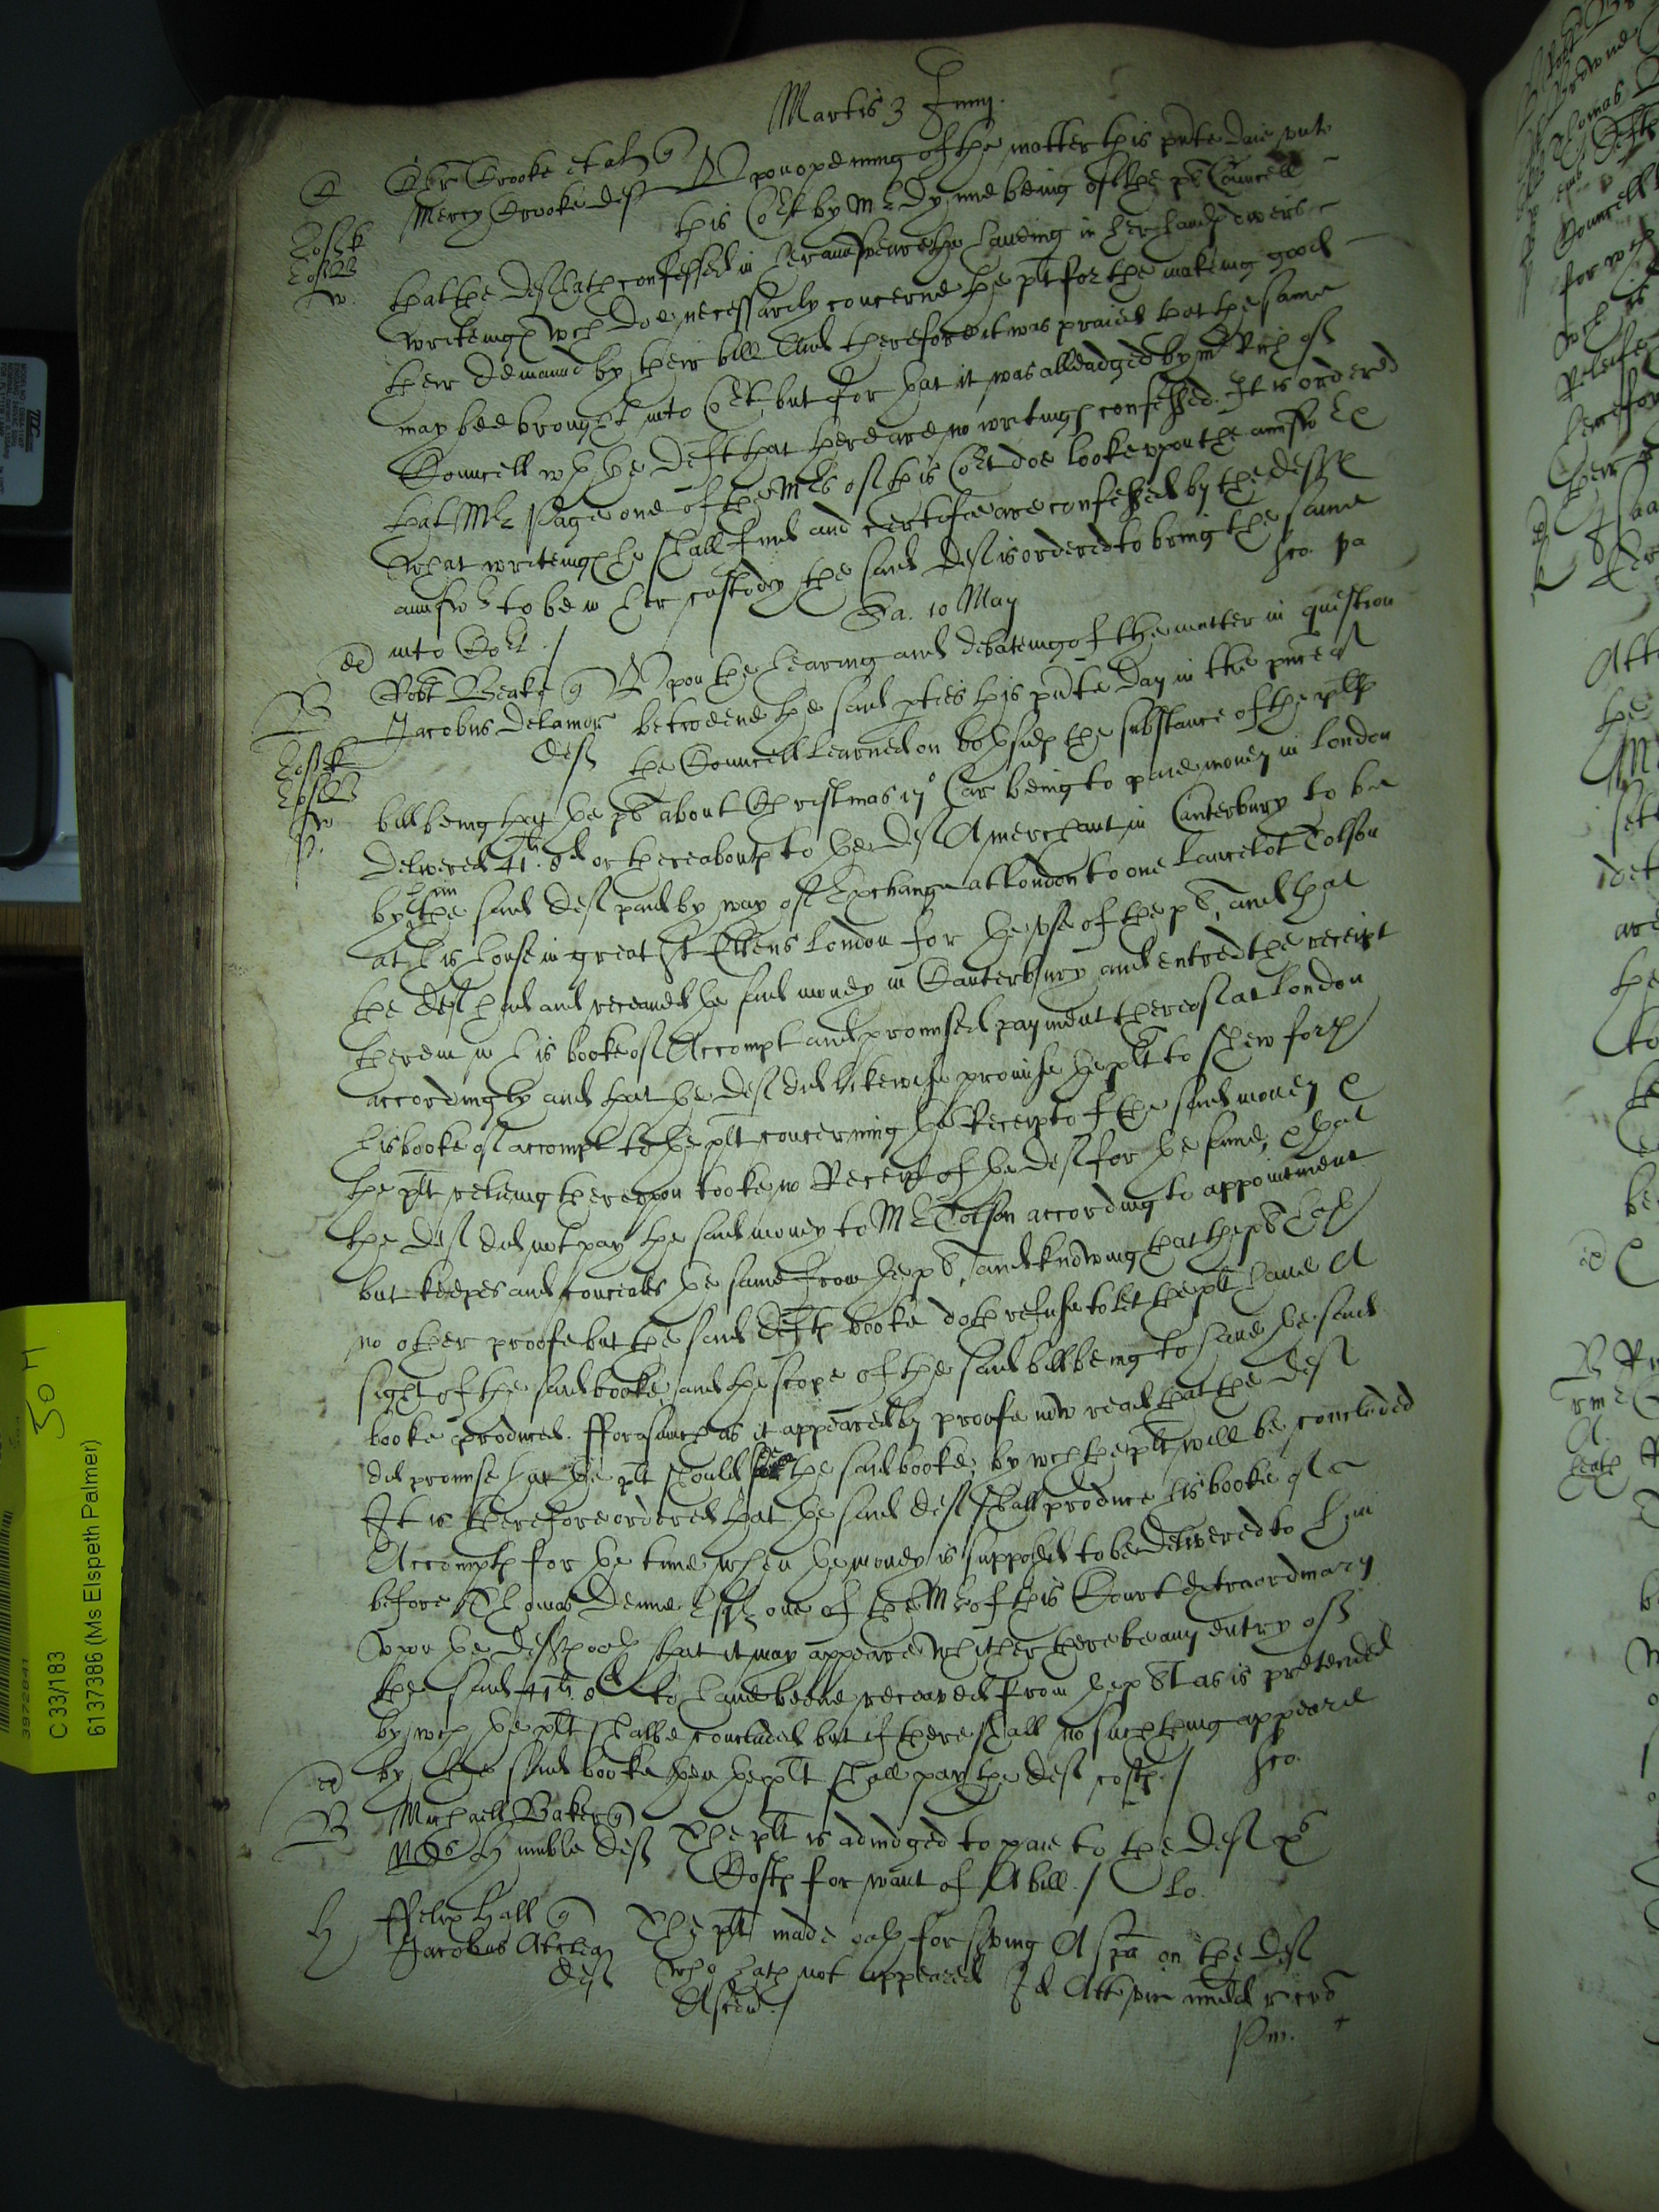 Martis 3 Junij
C Chr Crooke et al q
Mercy Crooke def
Upon opening of the matter this pnte daie unto
this Cort by Mr Dy one being of the plts Councell
that the def hath confessed in her answeare the having in her hands divers
writeings wch doe necessarily concerne the plt for the makeing good
their demaund by their bill And therefore it was praied that the same
may bee brought into Cort, but for that it was alleadged by mr Rich of
Councell wth the deft that there are no writings confessed. It is ordered
that Mr Page one of the Mrs of this Cort doe looke upon the answer &
what writeings he shall find and certefie are confessed by the defts
answer to be in her custody the said def is ordered to bring the same
into Cort /
Jo. pa
Sa. 10 May
B
Robt Beake q
Jacobus Delamor
def
Upon the hearing and debateing of the matter in question
betweene the said pties this pnte day in the pnce of
the Councell learned on both sides the substance of the plts
bill being that the plt about Christmas 17o Car being to paie money in London
delivered 41li 8d or thereabouts to the def A merchant in Canterbury to be
by him the said def paid by way of Exchange at London to one Lancelot Tolson
at his house in great St Ellens London for the use of the plt, and that
the def had and receaved the said money in Canterbury and entred the receipt
therein in his booke of Accompt and promised payment thereof at London
accordingly and that the def did likewise promise the plt to shew forth
his booke of accompt to the plt concerning the Receipt of the said money &
the plt relieing thereupon tooke no Receipt of the def for the same, & that
the def did not pay the said money to Mr Tolson according to appointment
but keepes and conceales the same from the plt, and knowing that the plt hath
no other proofe but the said defts booke doth refuse to let the plt have A
sight of the said booke, and the scope of the said bill being to have the said
booke produced. fforasmuch as it appeared by proofe now read that the def
did promise that the plt should see the said booke, by wch the plt will be concluded
It is therefore ordered that the said def shall produce his booke of
Accompts for the time when the money is supposed to be delivered to him
before Thomas Denne Esqr one of the Mrs of this Court extraordinary
upon the defts oath that it may appeare whether there be any entry of
the said 41li 8d to have beene receaved from the plt as is pretended
by wch the plt shalbe concluded but if there shall no such thing appeare
by the said booke then the plt shall pay the def costs /
Jo.
B
Michaell Baker q
Humble def
The plt is adiudged to paie to the def
Costs for want of A bill. / Lo.
H
ffelix Hall q
Jacobus
def
The plt made oath for serving A spa on the def
who hath not appeared Id Att
39722841
C 33/183
6137386 (Ms Elspeth Palmer)